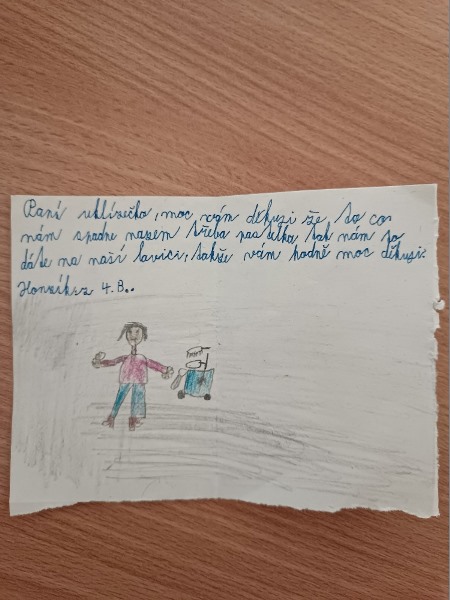 Paní uklízečko, moc vám děkuji že to co
nám spadne nazem třeba pastelka tak nám to
dáte na naší lavici, takže vám hodně moc děkuji.
Honzík z 4.B..